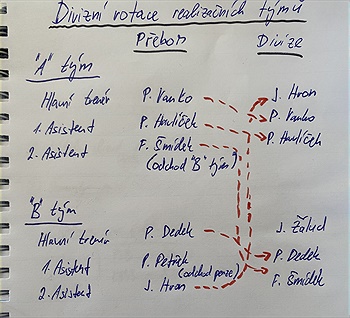 Divizní rotace realizačních týmů
Přebor Divize
"A" tým
Hlavní trenér P. Vaňko J. Hron
1. Asistent P. Havlíček P. Vaňko
2. Asistent F. Šmídek P. Havlíček
(odchod "B" tým)
"B" tým
Hlavní trenér P. Dedek J. Žalud
1. Asistent P. Petřek P. Dedek
(odchod pauze)
2. Asistent J. Hron F. Šmídek